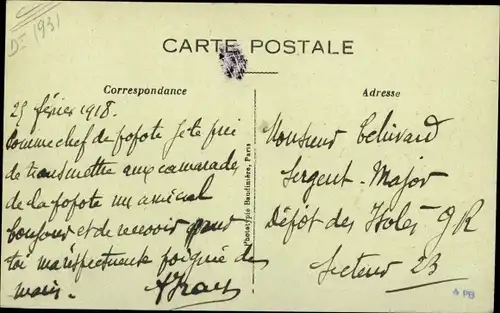 DT 1931
CARTE POSTALE
Correspondance
Adresse
25 février 1918.
Comme chef de popote je te prie
de transmettre aux camarades
de la popote un amical
bonjour et de recevoir pour
toi ma respectueuse poignée de
main.
Monsieur
Sergent-Major
Dépôt des Isolés G R
Secteur 23
Phototypie Baudinière, Paris
4 PB